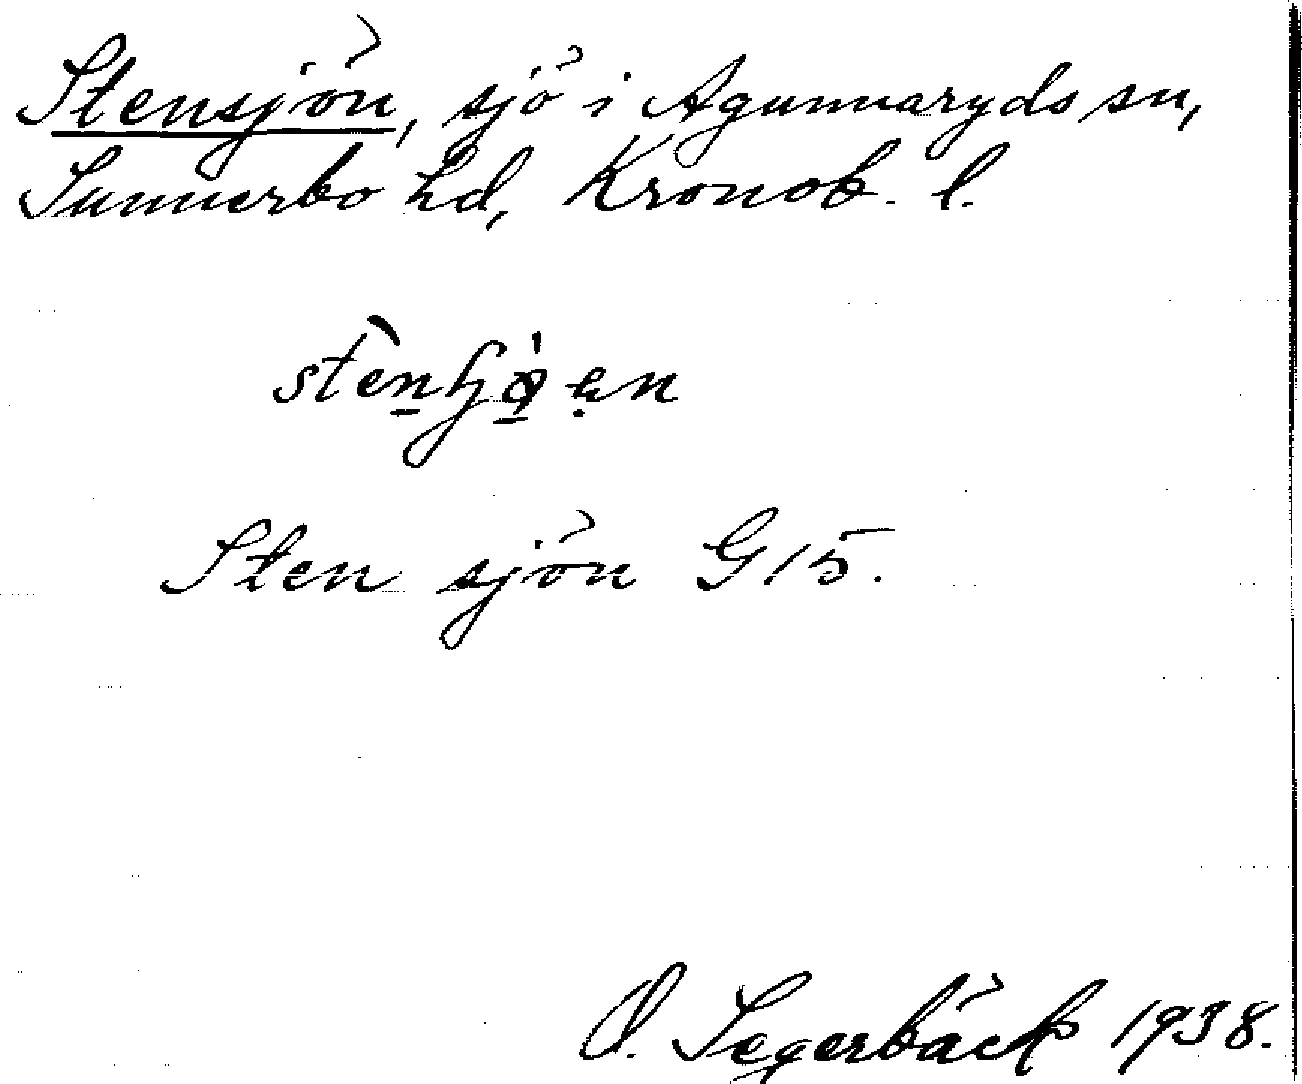 Stensjön, sjö i Agunnaryds sn,
Sunnerbo hd, Kronob. l.
Sten sjön G15.
Segerbäck 1938.